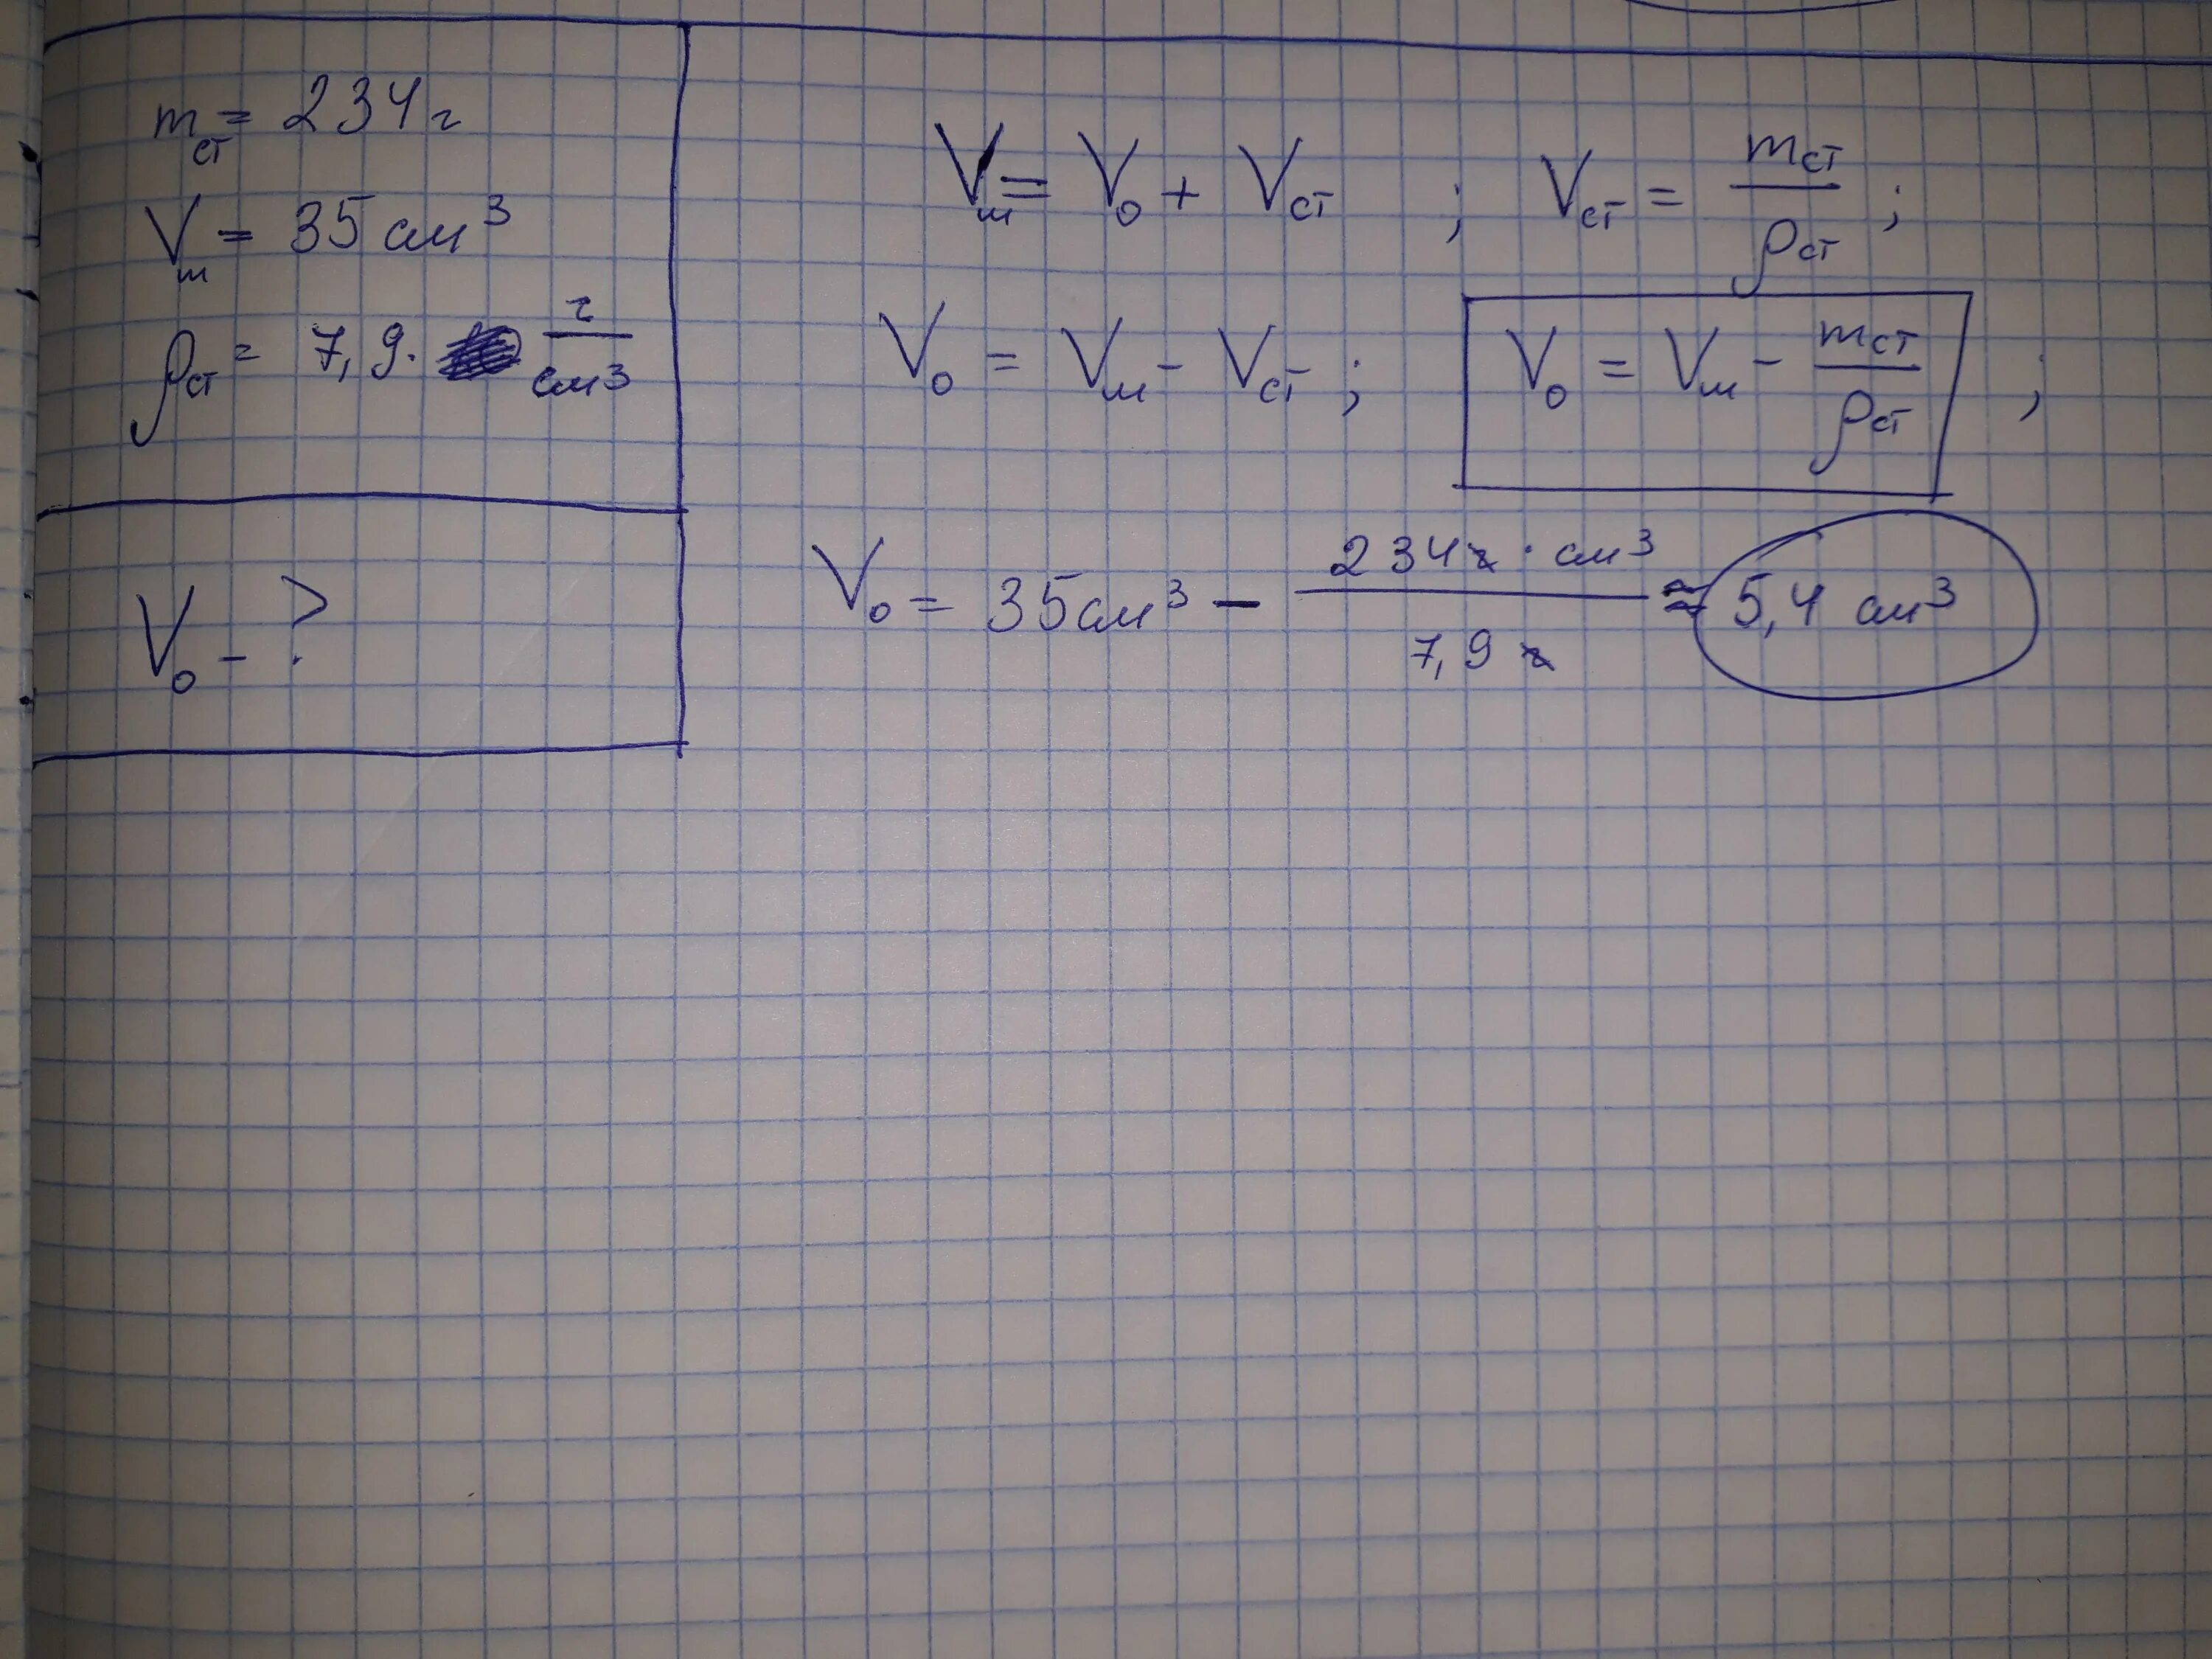 m_ст = 234 г
V_ш = 35 см³
ρ_ст = 7,9 · г/см³
V₀ - ?
V_ш = V₀ + V_ст ; V_ст = m_ст/ρ_ст ;
V₀ = V_ш - V_ст ; V₀ = V_ш - m_ст/ρ_ст ;
V₀ = 35 см³ - 234 г · см³/7,9 г ≈ 5,4 см³